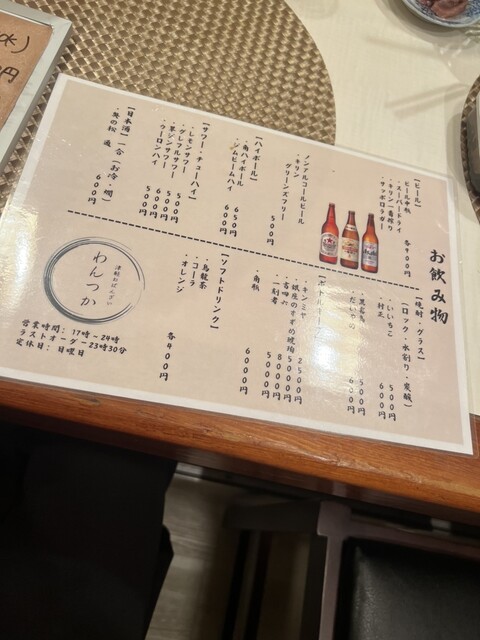 お飲み物
【ビール】
ビール中瓶
・スーパードライ
・キリン一番搾り
・サッポロラガー
各700円
ノンアルコールビール
・キリン
グリーンズフリー
500円
【ハイボール】
・角ハイボール 650円
・ジムビームハイ 600円
【サワー・チューハイ】
・レモンサワー 500円
・グレフルサワー 500円
・翠ジンサワー 500円
・ウーロンハイ 500円
【日本酒】一合（お冷・燗）
600円
【焼酎・グラス】
【ロック・水割り・炭酸】
・いいちこ 500円
600円
600円
・キンミヤ 2500円
・銀座のすずめ琥珀 5000円
・吉四六 8000円
・一刻者 5000円
・角瓶 6000円
【ソフトドリンク】
・烏龍茶
・コーラ
・オレンジ
各400円
津軽おばんざい
わんつか
営業時間：17時-24時
ラストオーダー23時30分
定休日：日曜日
円